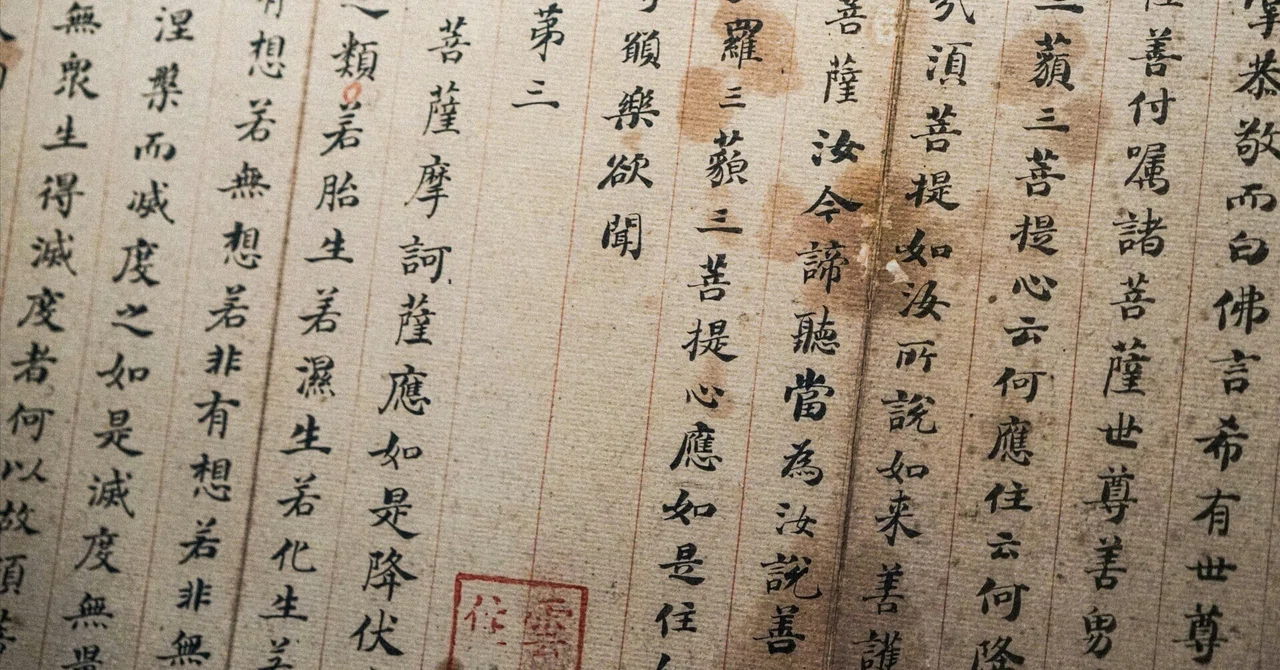 掌恭敬而白佛言希有世尊
善付嘱諸菩薩世尊善男
三藐三菩提心云何應住云何降
須菩提如汝所說如来善護
菩薩汝今諦聽當為汝說善
羅三藐三菩提心應如是住
願樂欲聞
第三
菩薩摩訶薩應如是降伏
之類若胎生若濕生若化生若
有想若無想若非有想若非無
涅槃而滅度之如是滅度無量
無衆生得滅度者何以故須菩
住